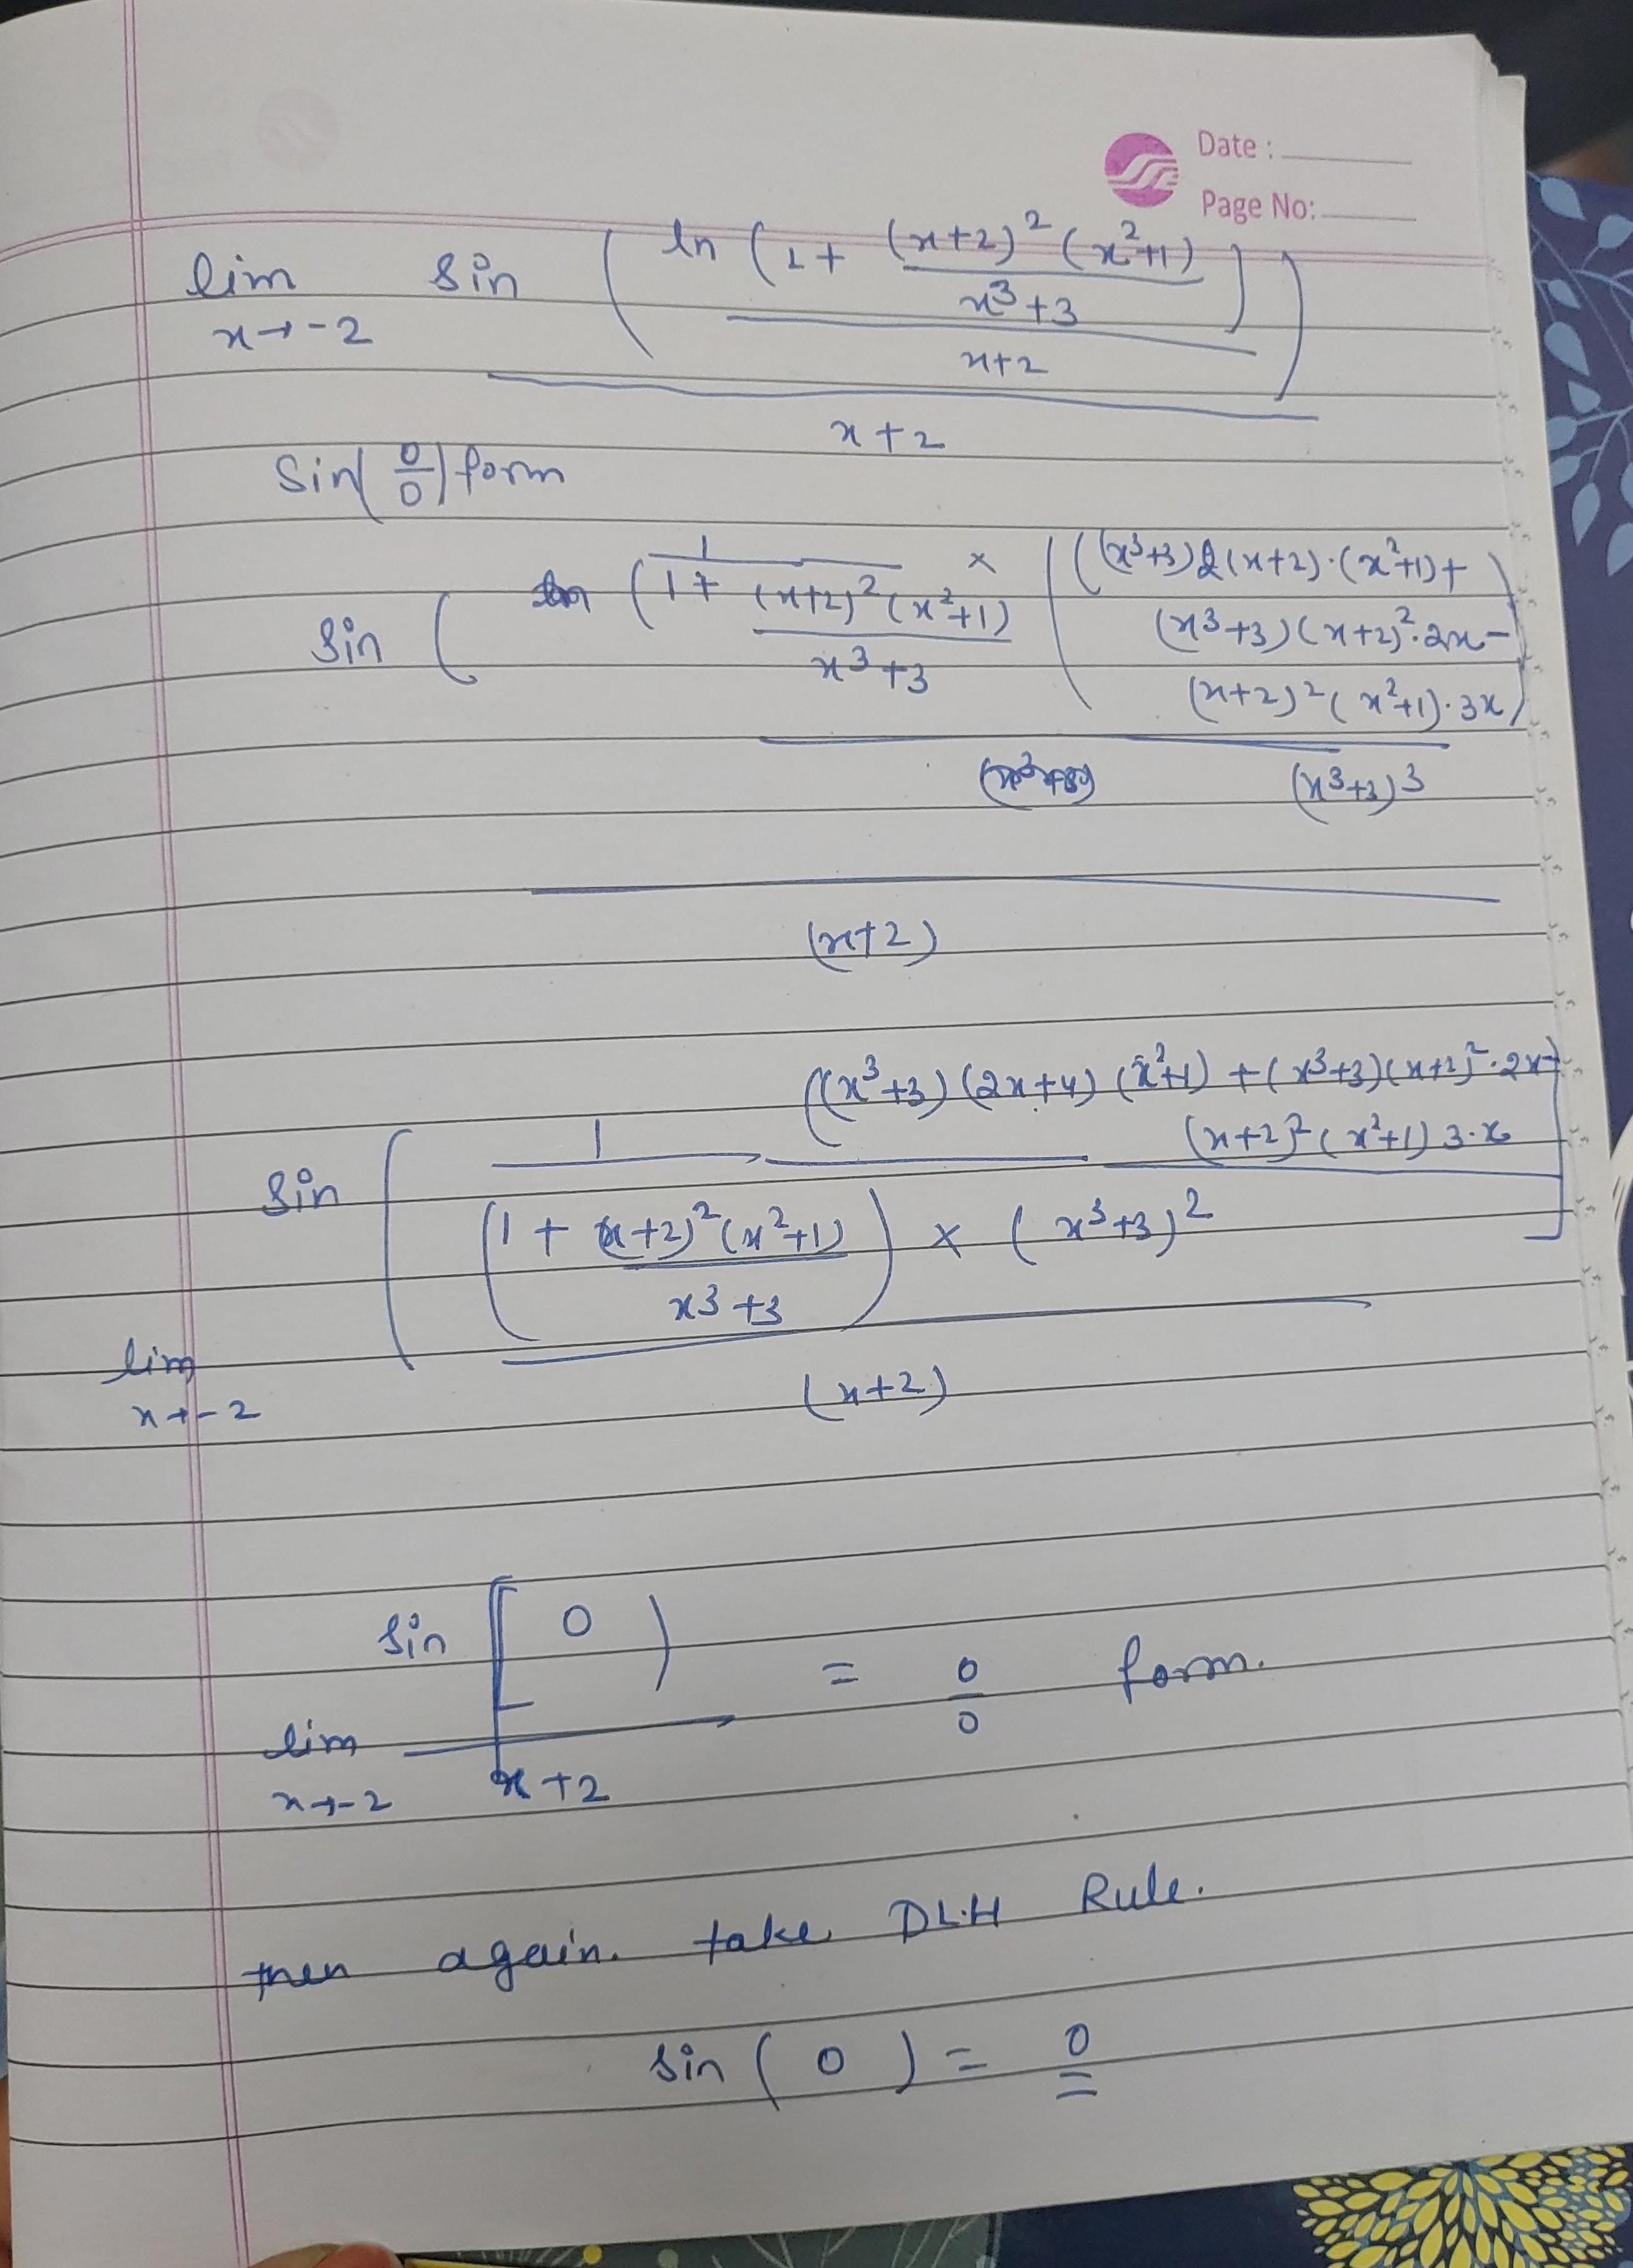 Date :
Page No:
lim x→-2 sin ( ln (1 + (x+2)² (x²+1) / x³+3 ) / x+2 ) / x+2
Sin( 0/0 ) form
Sin ( ( 1 / 1 + (x+2)² (x²+1) / x³+3 × ( (x³+3) 2(x+2)·(x²+1) +
(x³+3) (x+2)²·2x -
(x+2)² (x²+1)·3x )
(x³+3)³
(x+2)
((x³+3) (2x+4) (x²+1) + (x³+3)(x+2)²·2x -
(x+2)² (x²+1) 3·x
lim x→-2 Sin [ 1 / (1 + (x+2)² (x²+1) / x³+3 ) × (x³+3)² ]
(x+2)
lim x→-2 Sin [ 0 ) / x+2 = 0/0 form.
then again. take DL.H Rule.
Sin ( 0 ) = 0